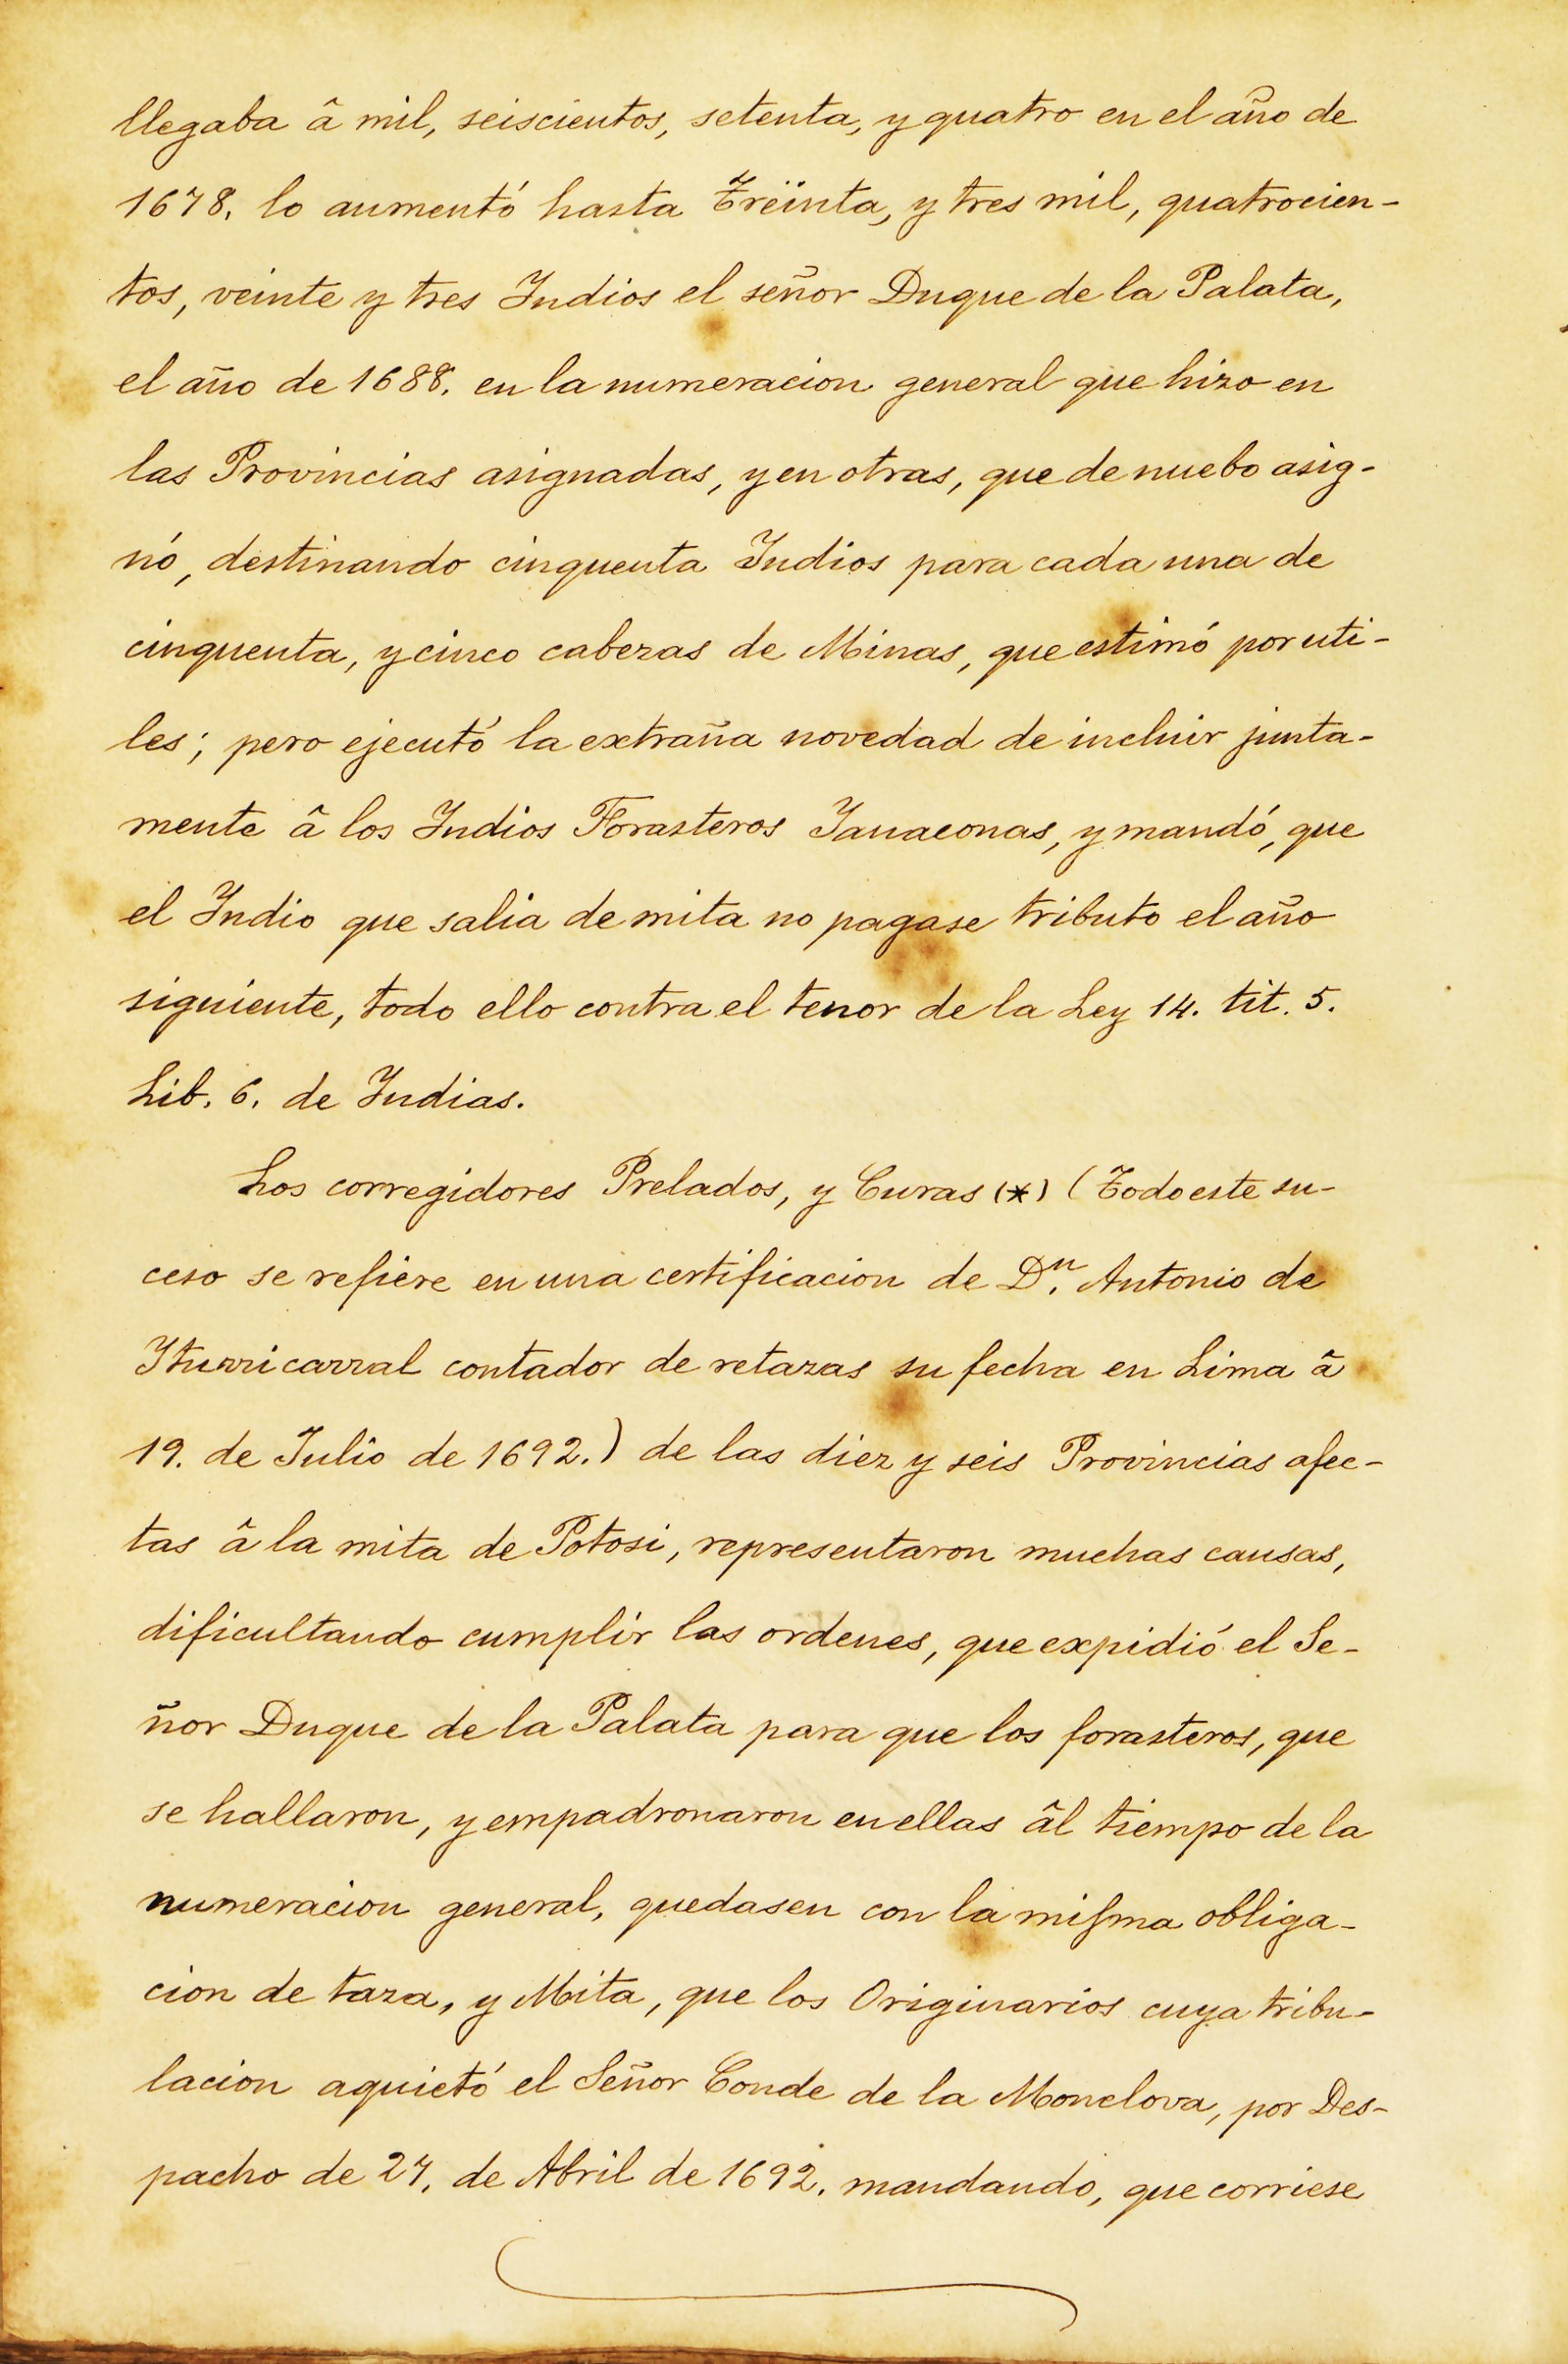 llegaba â mil, seiscientos, setenta, y quatro en el año de
1678. lo aumentó hasta Treïnta, y tres mil, quatrocien-
tos, veinte y tres Indios el señor Duque de la Palata,
el año de 1688. en la numeracion general que hizo en
las Provincias asignadas, y en otras, que de nuebo asig-
nó, destinando cinquenta Indios para cada una de
cinquenta, y cinco cabezas de Minas, que estimó por uti-
les; pero ejecutó la extraña novedad de incluir junta-
mente â los Indios Forasteros Yanaconas, y mandó, que
el Indio que salia de mita no pagase tributo el año
siguiente, todo ello contra el tenor de la Ley 14. tit. 5.
Lib. 6. de Indias.
Los corregidores Prelados, y Curas (*) (Todo este su-
ceso se refiere en una certificacion de D.ⁿ Antonio de
Yturricarral contador de retazas su fecha en Lima â
19. de Julio de 1692.) de las diez y seis Provincias afec-
tas â la mita de Potosi, representaron muchas causas,
dificultando cumplir las ordenes, que expidió el Se-
ñor Duque de la Palata para que los forasteros, que
se hallaron, y empadronaron en ellas âl tiempo de la
numeracion general, quedasen con la miſma obliga-
cion de taza, y Mita, que los Originarios cuya tribu-
lacion aquietó el Señor Conde de la Monclova, por Des-
pacho de 27. de Abril de 1692. mandando, que corriese